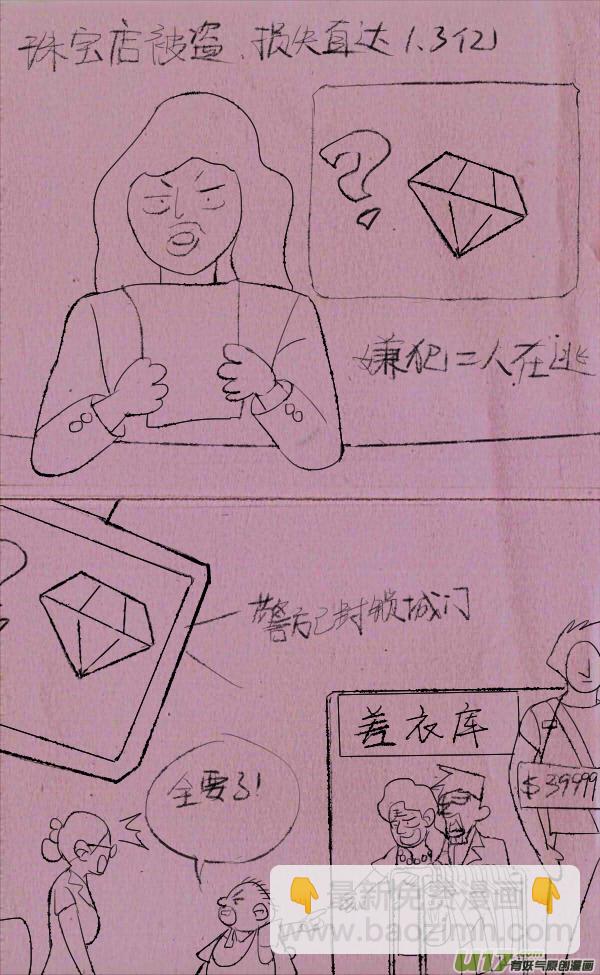 珠宝店被盗、损失直达1.3亿
?
嫌犯二人在逃
警方已封锁城门
差衣库
$39999
全要了!
最新免费漫画
www.baozimh.com
U17.com
有妖气原创漫画